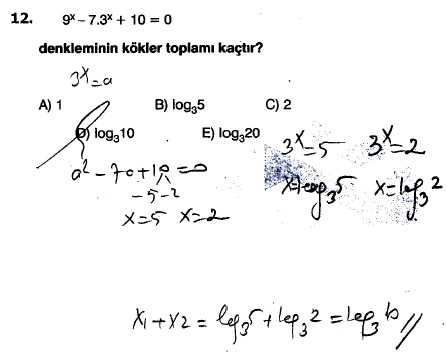 12. 9ˣ – 7.3ˣ + 10 = 0
denkleminin kökler toplamı kaçtır?
3ˣ = a
A) 1 B) log₃5 C) 2
D) log₃10 E) log₃20
3ˣ = 5 3ˣ = 2
a² – 7a + 10 = 0
–5 –2
x = log₃5 x = log₃2
x = 5 x = 2
x₁ + x₂ = log₃5 + log₃2 = log₃10 //